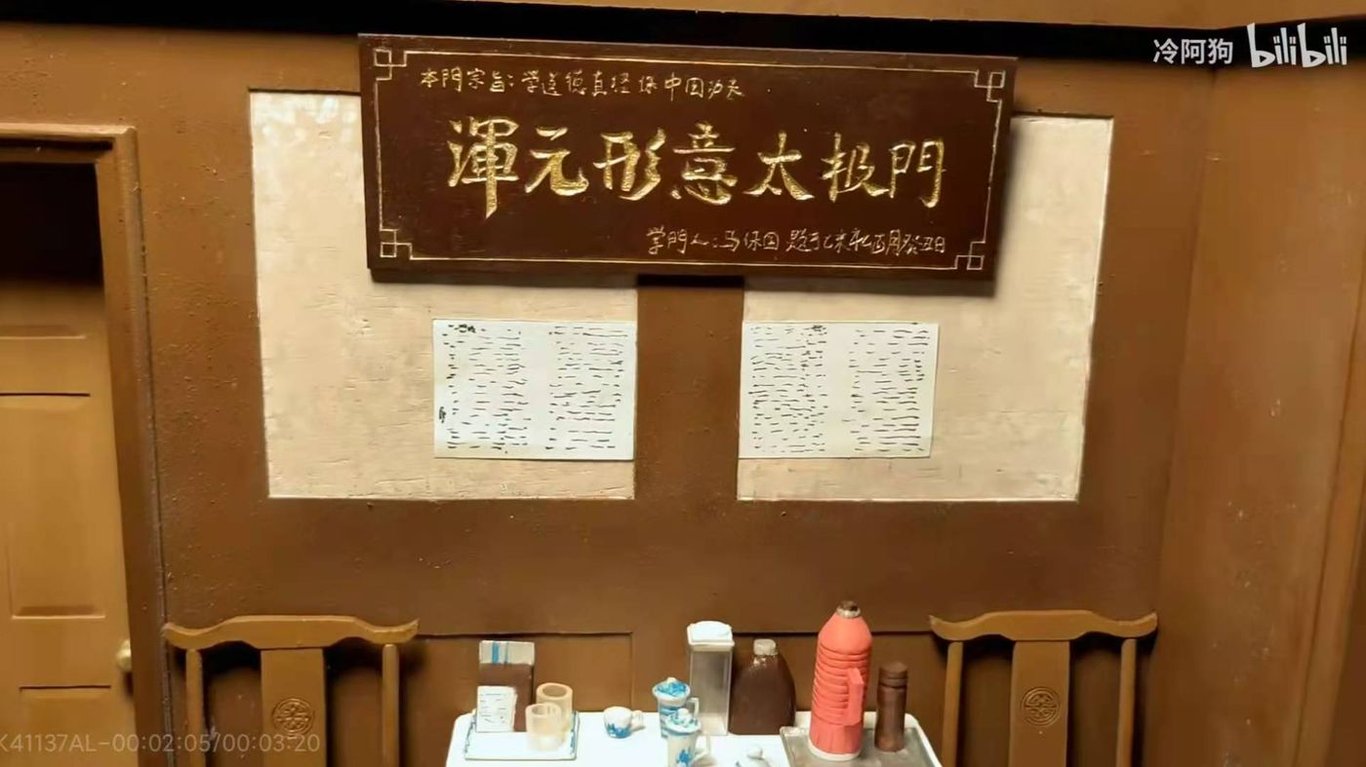 冷阿狗 bilibili
本門宗旨:学道德真经 保中国功夫
渾元形意太极門
掌門人:马保国 题于乙未年乙酉月癸丑日
K41137AL-00:02:05/00:03:20